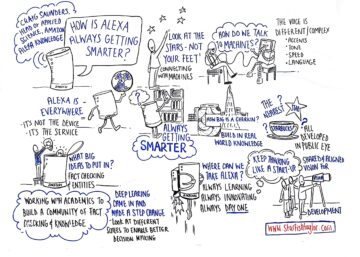 CRAIG SAUNDERS,
HEAD OF APPLIED
SCIENCE, AMAZON
ALEXA KNOWLEDGE
HOW IS ALEXA
ALWAYS GETTING
SMARTER?
LOOK AT THE
STARS - NOT
YOUR FEET!
CONNECTING
WITH MACHINES
HOW DO WE TALK
TO MACHINES?
THE VOICE IS
DIFFERENT/COMPLEX
- ACCENTS
- TONE
- SPEED
- LANGUAGE
ALEXA IS
EVERYWHERE
IT'S NOT THE DEVICE
- IT'S THE SERVICE
ALWAYS
GETTING
SMARTER
HOW BIG IS A GHERKIN?
BUILD IN REAL
WORLD KNOWLEDGE
THE NEAREST
STARBUCKS?
ALL
DEVELOPED
IN PUBLIC EYE
WHAT BIG
IDEAS TO PUT IN?
FACT CHECKING
ENTITIES
WORKING WITH ACADEMICS TO
BUILD A COMMUNITY OF FACT
CHECKING & KNOWLEDGE
DEEP LEARNING
CAME IN AND
MADE A STEP CHANGE
LOOK AT DIFFERENT
RULES TO ENABLE BETTER
DECISION MAKING
WHERE CAN WE
TAKE ALEXA?
ALWAYS LEARNING
ALWAYS INNOVATING
ALWAYS DAY ONE
KEEP THINKING
LIKE A START-UP
SHARED & ALIGNED
VISION FOR
DEVELOPMENT